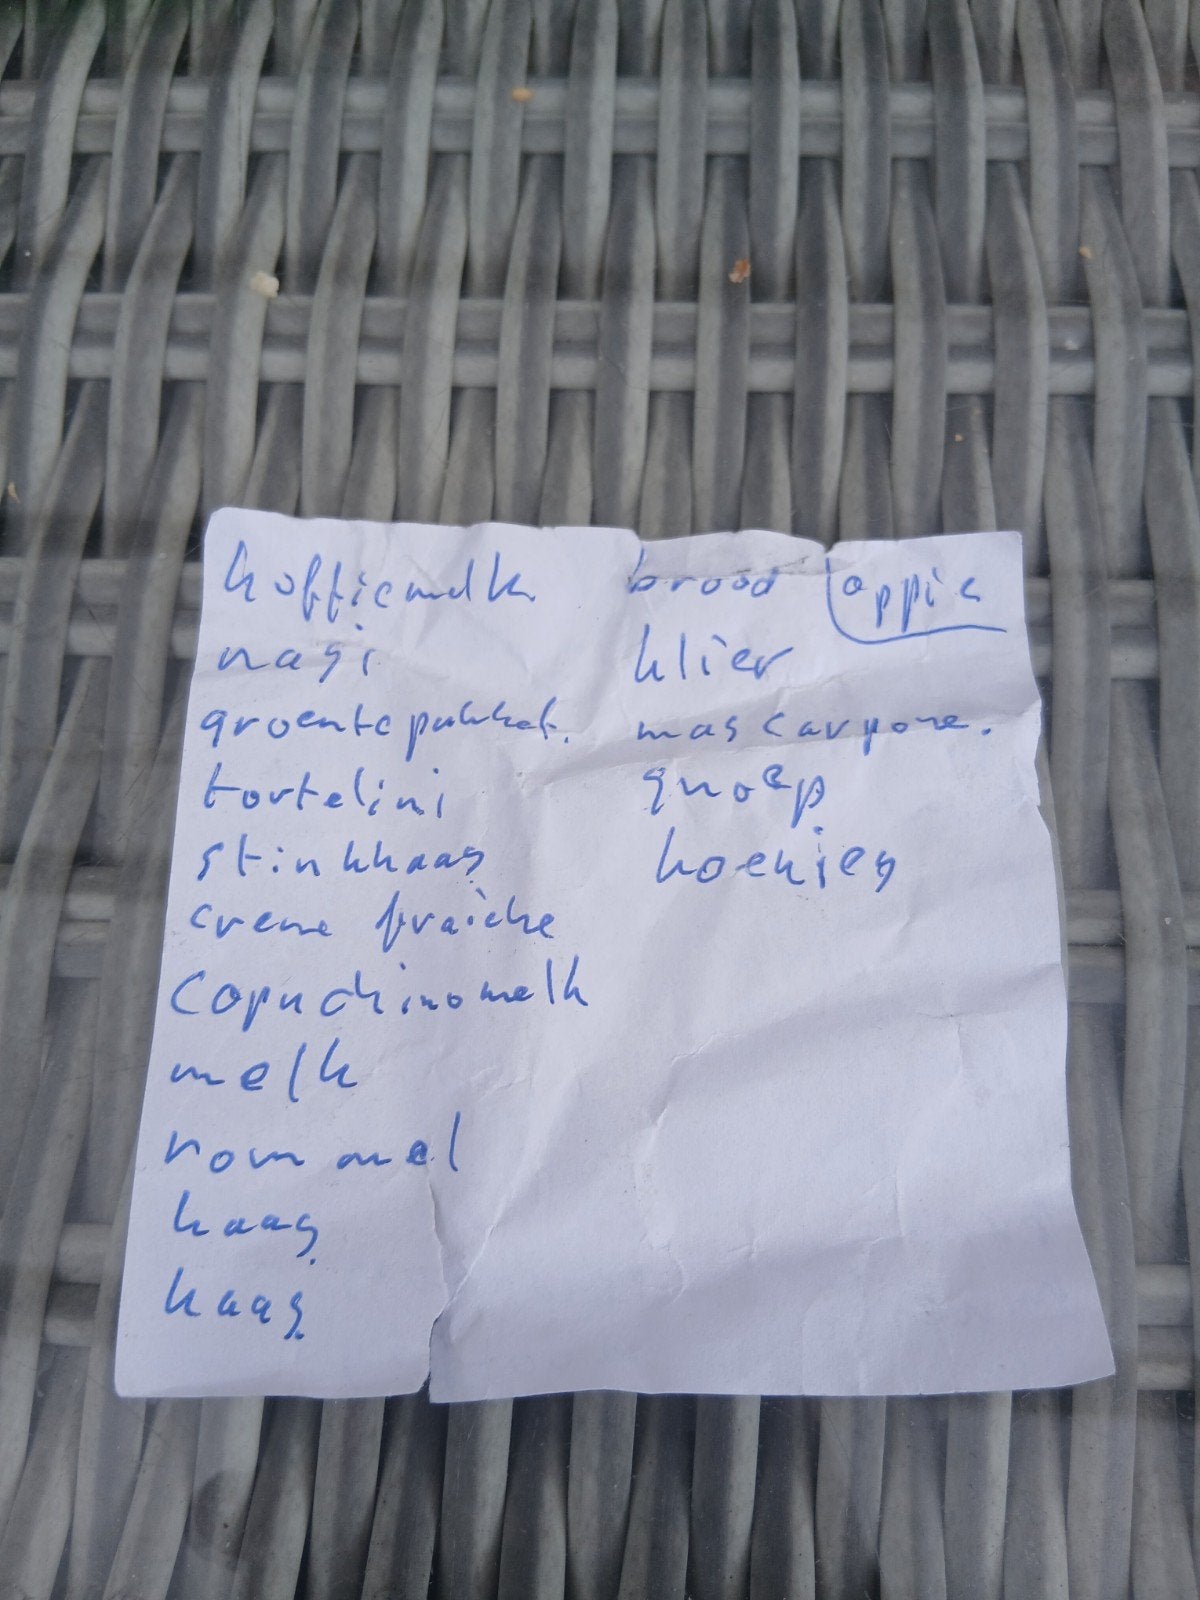 koffiemelk
nasi
groentepakket.
tortelini
stinkkaas
creme fraiche
Capuchinomelk
melk
rommel
kaas
kaas
brood
appie
klier
mascarpone.
snoep
koekies